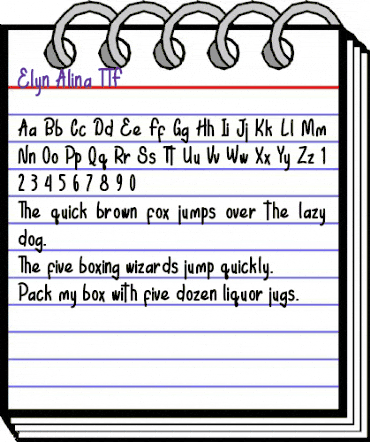 Elyn Alina TTF
Aa Bb Cc Dd Ee Ff Gg Hh Ii Jj Kk Ll Mm
Nn Oo Pp Qq Rr Ss Tt Uu Vv Ww Xx Yy Zz 1
2 3 4 5 6 7 8 9 0
The quick brown fox jumps over the lazy
dog.
The five boxing wizards jump quickly.
Pack my box with five dozen liquor jugs.